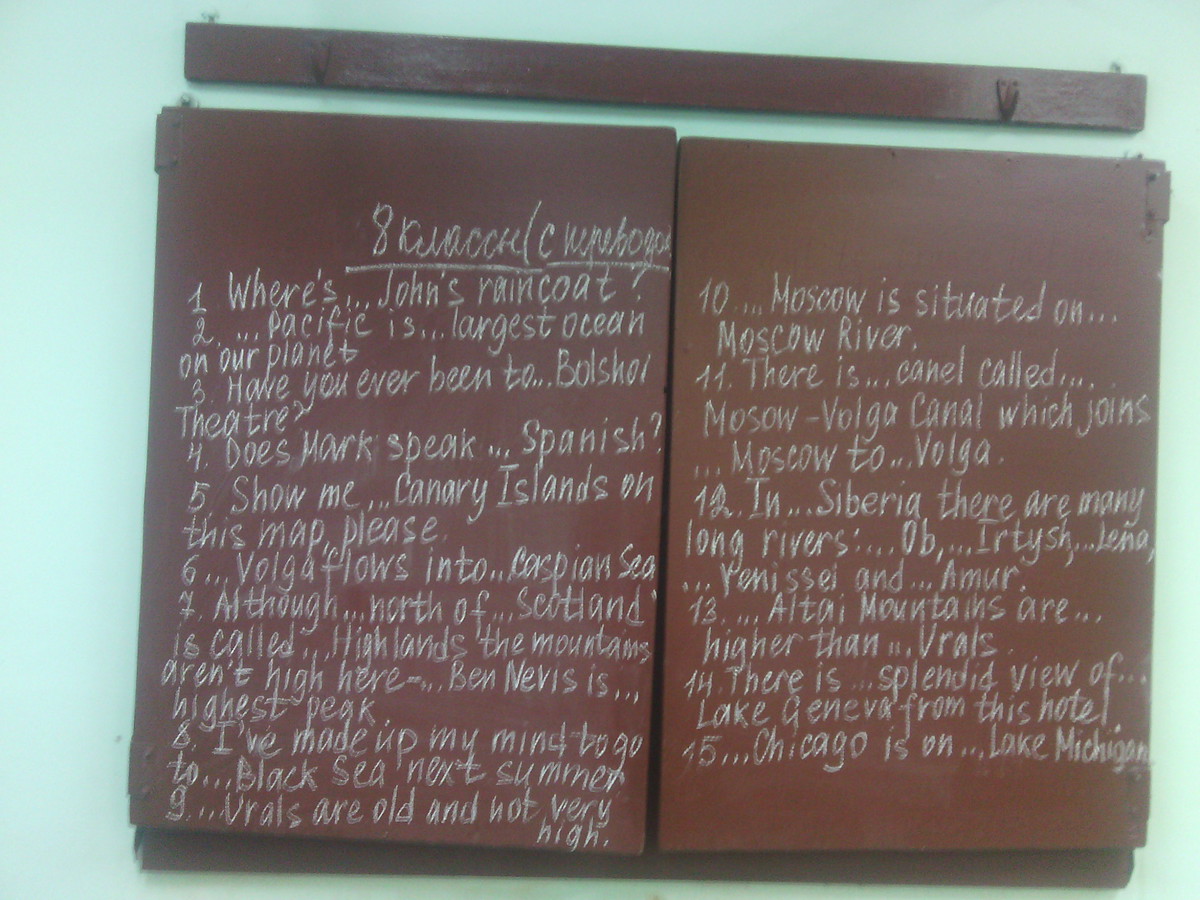 8 классы (с переводом
1 Where's ... John's raincoat?
2. ... Pacific is ... largest ocean
on our planet
3. Have you ever been to ... Bolshoi
Theatre?
4. Does Mark speak ... Spanish?
5. Show me ... Canary Islands on
this map, please.
6 ... Volga flows into ... Caspian Sea
7. Although ... north of ... Scotland
is called ... Highlands the mountains
aren't high here - ... Ben Nevis is ...
highest peak
8. I've made up my mind to go
to ... Black Sea next summer
9 ... Urals are old and not very
high.
10 ... Moscow is situated on ...
Moscow River.
11. There is ... canel called ...
Mosow-Volga Canal which joins
... Moscow to ... Volga.
12. In ... Siberia there are many
long rivers: ... Ob, ... Irtysh, ... Lena,
... Yenissei and ... Amur.
13. ... Altai Mountains are ...
higher than ... Urals.
14. There is ... splendid view of ...
Lake Geneva from this hotel.
15 ... Chicago is on ... Lake Michigan